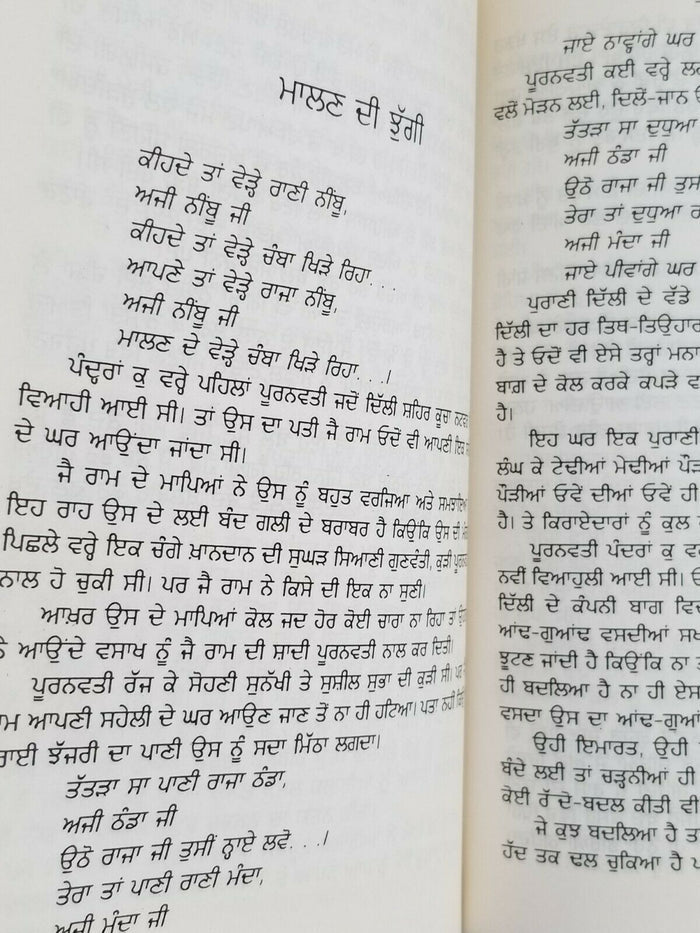 ਮਾਲਣ ਦੀ ਝੁੱਗੀ
ਕੀਹਦੇ ਤਾਂ ਵੇੜ੍ਹੇ ਰਾਣੀ ਨੀਂਬੂ,
ਅਜੀ ਨੀਂਬੂ ਜੀ
ਕੀਹਦੇ ਤਾਂ ਵੇੜ੍ਹੇ ਚੰਬਾ ਖਿੜੇ ਰਿਹਾ. . .
ਆਪਣੇ ਤਾਂ ਵੇੜ੍ਹੇ ਰਾਜਾ ਨੀਂਬੂ,
ਅਜੀ ਨੀਂਬੂ ਜੀ
ਮਾਲਣ ਦੇ ਵੇੜ੍ਹੇ ਚੰਬਾ ਖਿੜੇ ਰਿਹਾ. . .।
ਪੰਦ੍ਹਰਾਂ ਕੁ ਵਰ੍ਹੇ ਪਹਿਲਾਂ ਪੂਰਨਵਤੀ ਜਦੋਂ ਦਿੱਲੀ ਸ਼ਹਿਰ ਕੂਚਾ
ਵਿਆਹੀ ਆਈ ਸੀ। ਤਾਂ ਉਸ ਦਾ ਪਤੀ ਜੈ ਰਾਮ ਓਦੋਂ ਵੀ ਆਪਣੀ ਇਕ
ਦੇ ਘਰ ਆਉਂਦਾ ਜਾਂਦਾ ਸੀ।
ਜੈ ਰਾਮ ਦੇ ਮਾਪਿਆਂ ਨੇ ਉਸ ਨੂੰ ਬਹੁਤ ਵਰਜਿਆ ਅਤੇ ਸਮਝਾਇਆ
ਇਹ ਰਾਹ ਉਸ ਦੇ ਲਈ ਬੰਦ ਗਲੀ ਦੇ ਬਰਾਬਰ ਹੈ ਕਿਉਂਕਿ ਉਸ ਦੀ
ਪਿਛਲੇ ਵਰ੍ਹੇ ਇਕ ਚੰਗੇ ਖ਼ਾਨਦਾਨ ਦੀ ਸੁਘੜ ਸਿਆਣੀ ਗੁਣਵੰਤੀ, ਕੁੜੀ
ਨਾਲ ਹੋ ਚੁਕੀ ਸੀ। ਪਰ ਜੈ ਰਾਮ ਨੇ ਕਿਸੇ ਦੀ ਇਕ ਨਾ ਸੁਣੀ।
ਆਖ਼ਰ ਉਸ ਦੇ ਮਾਪਿਆਂ ਕੋਲ ਜਦ ਹੋਰ ਕੋਈ ਚਾਰਾ ਨਾ ਰਿਹਾ ਤਾਂ
ਆਉਂਦੇ ਵਸਾਖ ਨੂੰ ਜੈ ਰਾਮ ਦੀ ਸ਼ਾਦੀ ਪੂਰਨਵਤੀ ਨਾਲ ਕਰ ਦਿਤੀ।
ਪੂਰਨਵਤੀ ਰੱਜ ਕੇ ਸੋਹਣੀ ਸੁਨੱਖੀ ਤੇ ਸੁਸ਼ੀਲ ਸੁਭਾ ਦੀ ਕੁੜੀ ਸੀ।
ਆਪਣੀ ਸਹੇਲੀ ਦੇ ਘਰ ਆਉਣ ਜਾਣ ਤੋਂ ਨਾ ਹੀ ਹਟਿਆ। ਪਤਾ ਨਹੀਂ
ਝੱਜਰੀ ਦਾ ਪਾਣੀ ਉਸ ਨੂੰ ਸਦਾ ਮਿੱਠਾ ਲਗਦਾ।
ਤੱਤੜਾ ਸਾ ਪਾਣੀ ਰਾਜਾ ਠੰਡਾ,
ਅਜੀ ਠੰਡਾ ਜੀ
ਉਠੋ ਰਾਜਾ ਜੀ ਤੁਸੀਂ ਨ੍ਹਾਏ ਲਵੋ. . .।
ਤੇਰਾ ਤਾਂ ਪਾਣੀ ਰਾਣੀ ਮੰਦਾ,
ਅਜੀ ਮੰਦਾ ਜੀ
ਜਾਏ ਨਾਵ੍ਹਾਂਗੇ ਘਰ
ਪੂਰਨਵਤੀ ਕਈ ਵਰ੍ਹੇ
ਵਲੋਂ ਮੋੜਨ ਲਈ, ਦਿਲੋਂ-ਜਾਨ
ਤੱਤੜਾ ਸਾ ਦੁਧੂਆ
ਅਜੀ ਠੰਡਾ ਜੀ
ਉਠੋ ਰਾਜਾ ਜੀ
ਤੇਰਾ ਤਾਂ ਦੁਧੂਆ
ਅਜੀ ਮੰਦਾ ਜੀ
ਜਾਏ ਪੀਵਾਂਗੇ ਘਰ
ਪੁਰਾਣੀ ਦਿੱਲੀ ਦੇ ਵੱਡੇ
ਦਿੱਲੀ ਦਾ ਹਰ ਤਿਥ-ਤਿਉਹਾਰ
ਹੈ ਤੇ ਓਦੋਂ ਵੀ ਏਸੇ ਤਰ੍ਹਾਂ
ਬਾਗ਼ ਦੇ ਕੋਲ ਕਰਕੇ ਕਪੜੇ
ਹੈ।
ਇਹ ਘਰ ਇਕ ਪੁਰਾਣੀ
ਲੰਘ ਕੇ ਟੇਢੀਆਂ ਮੇਢੀਆਂ
ਪੌੜੀਆਂ ਓਵੇਂ ਦੀਆਂ ਓਵੇਂ ਹੀ
ਹੈ। ਤੇ ਕਿਰਾਏਦਾਰਾਂ ਨੂੰ ਕੁਲ
ਪੂਰਨਵਤੀ ਪੰਦਰਾਂ ਕੁ
ਨਵੀਂ ਵਿਆਹੁਲੀ ਆਈ ਸੀ।
ਦਿੱਲੀ ਦੇ ਕੰਪਨੀ ਬਾਗ
ਆਂਢ-ਗੁਆਂਢ ਵਸਦੀਆਂ
ਝੂਟਣ ਜਾਂਦੀ ਹੈ ਕਿਉਂਕਿ ਨਾ
ਹੀ ਬਦਲਿਆ ਹੈ ਨਾ ਹੀ ਏਸ
ਵਸਦਾ ਉਸ ਦਾ
ਉਹੀ ਇਮਾਰਤ, ਉਹੀ
ਬੰਦੇ ਲਈ ਤਾਂ ਚੜ੍ਹਨੀਆਂ ਹੀ
ਕੋਈ ਰੱਦੋ-ਬਦਲ ਕੀਤੀ ਵੀ
ਜੇ ਕੁਝ ਬਦਲਿਆ ਹੈ
ਹੱਦ ਤਕ ਢਲ ਚੁਕਿਆ ਹੈ